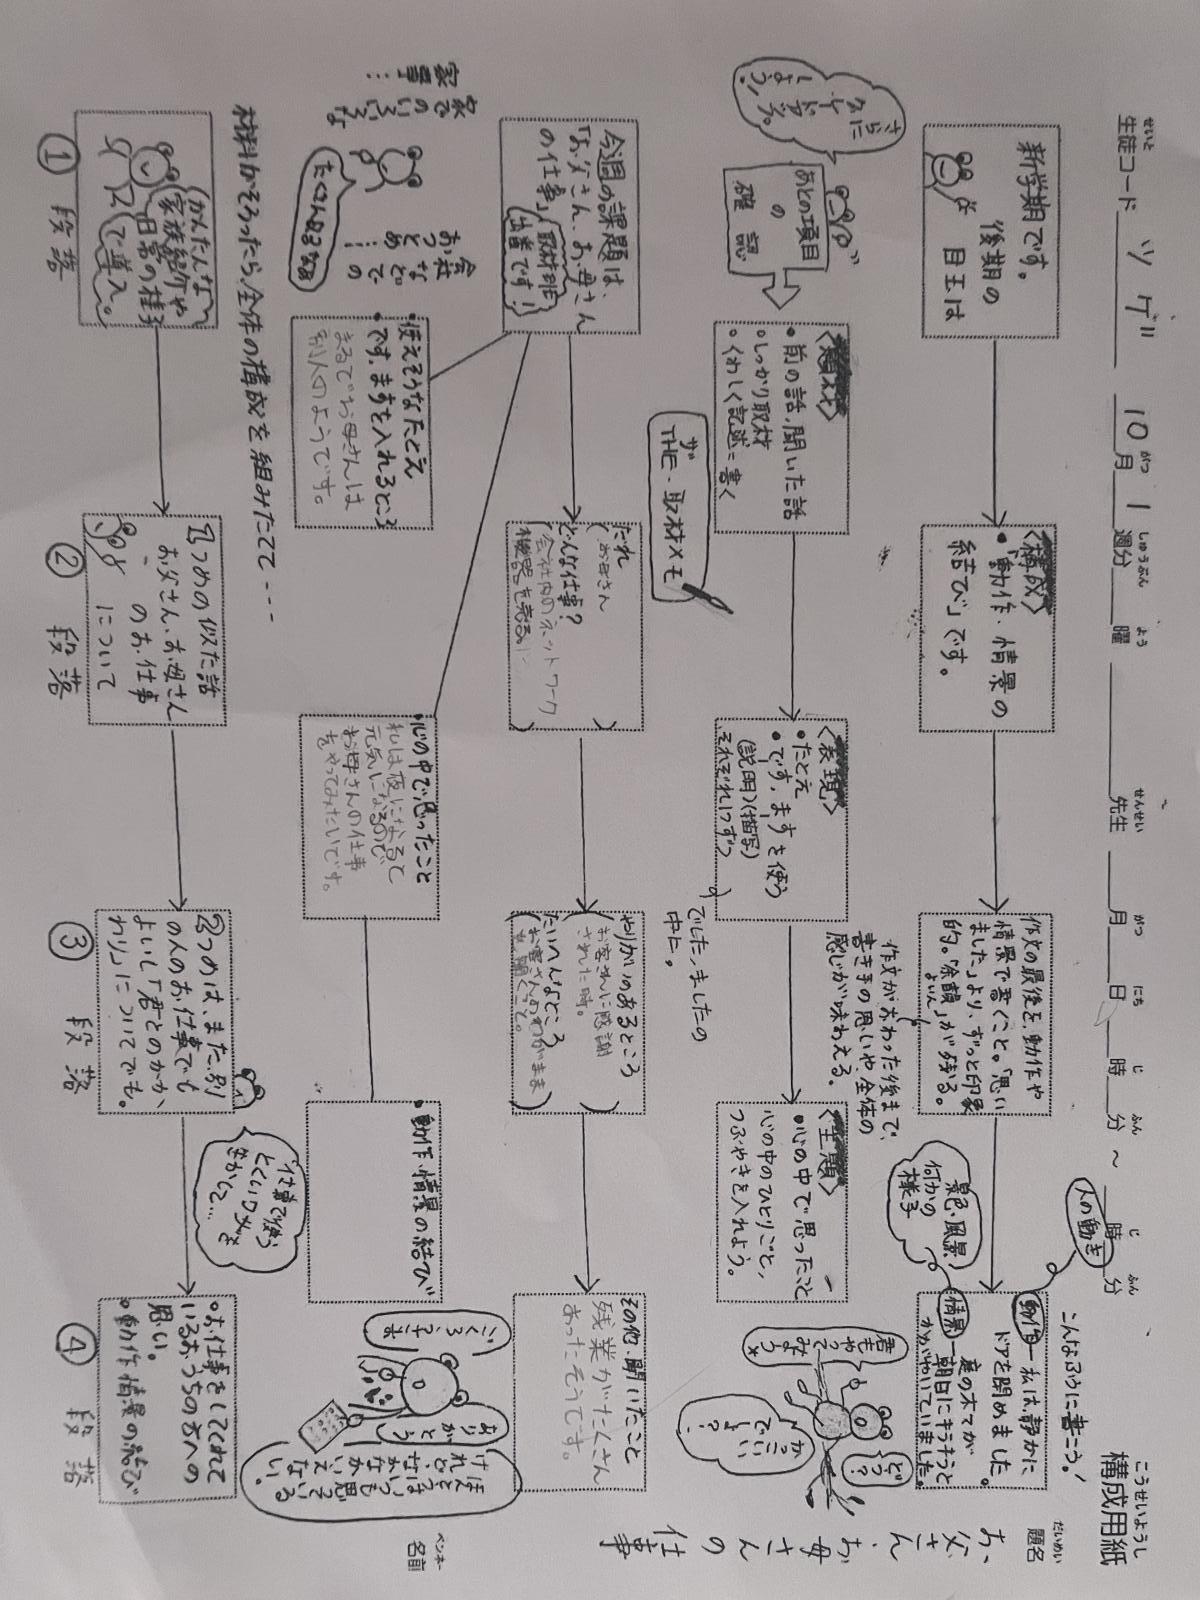 構成用紙
こうせいようし
生徒コード ツゲ 10月1週分 曜 先生 月 日 時 分 ~ 時 分
せいと がつ しゅうぶん よう せんせい がつ にち じ ふん じ ふん
題名
だいめい
お父さん、お母さんの仕事
名前
ペンネーム
新学期です。
後期の
目玉は
〈構成〉
・「動作・情景の
結び」です。
作文の最後を、動作や
情景で書くこと。「思い
ました」より、ずっと印象
的。「余韻」が残る。
よいん
作文がおわった後まで、
書き手の思いや、全体の
感じが味わえる。
景色・風景
何かの
様子
人の動き
こんなふうに書こう!
動作―私は、静かに、
ドアを閉めました。
情景―庭の木々が
朝日にキラキラと
かがやいていました。
さらに
しよう!
あとの項目
の
確認
〈題材〉
・前の話、聞いた話
・しっかり取材
・くわしく記述=書く
〈表現〉
・たとえ
・です、ますを使う
(説明)(描写)
それぞれ1つずつ
でした、ましたの
中に。
〈主題〉
・心の中で思ったこと
心の中のひとりごと、
つぶやきを入れよう。
君も
やって
みよう
どう?
かっこ
いい
でしょ?
THE・取材メモ
ザ
今週の課題は、
「お父さん、お母さん
の仕事」取材班
出番です!!
だれ
(お母さん)
どんな仕事?
(会社内のネットワーク
機器を売る。)
やりがいのあるところ
(お客さんに感謝
された時。)
たいへんなところ
(お客さんのわがまま
を聞くこと。)
その他、聞いたこと
残業がたくさん
あったそうです。
家での
いろいろな
家事…
会社
などでの
おつとめ…
たくさんあるなあ
・使えそうなたとえ
です、ますを入れるところ
まるでお母さんは
別人のようです。
・心の中で思ったこと
私は夜になると
元気になるので
お母さんの仕事
をやってみたいです。
・動作、情景の結び
ごくろうさま
ありがとう
ほんとうはいつも思っている
けれど、なかなかいえない。
材料がそろったら、全体の構成を組みたてて----
①段落
かんたんな
家族紹介や
日常の様子
で導入。
②段落
1つめの似た話
お父さん、お母さん
のお仕事
について
③段落
2つめは、また、別
の人のお仕事でも
よいし「君とのかか
わり」についてでも。
仕事で使う
とくいワザを
生かして…
④段落
・お仕事をしてくれて
いるおうちの方への
思い。
・動作・情景の結び